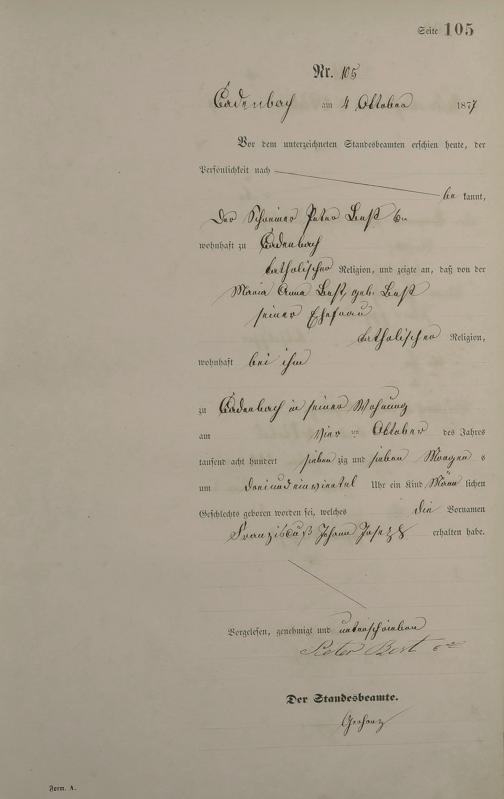 Seite 105
Nr. 105
Cadenbach am 4 Oktober 1877
Vor dem unterzeichneten Standesbeamten erschien heute, der
Persönlichkeit nach
be kannt,
der Schreiner Peter Best
wohnhaft zu Cadenbach
katholischer Religion, und zeigte an, daß von der
Maria Anna Best, geb. Best
seiner Ehefrau
katholischer Religion,
wohnhaft bei ihm
zu Cadenbach in seiner Wohnung
am vier ten Oktober des Jahres
tausend acht hundert sieben zig und sieben Morgen s
um dreiundeinviertel Uhr ein Kind männ lichen
Geschlechts geboren worden sei, welches die Vornamen
Johann Josef erhalten habe.
Vorgelesen, genehmigt und unterschrieben
Peter Best
Der Standesbeamte.
Form. A.